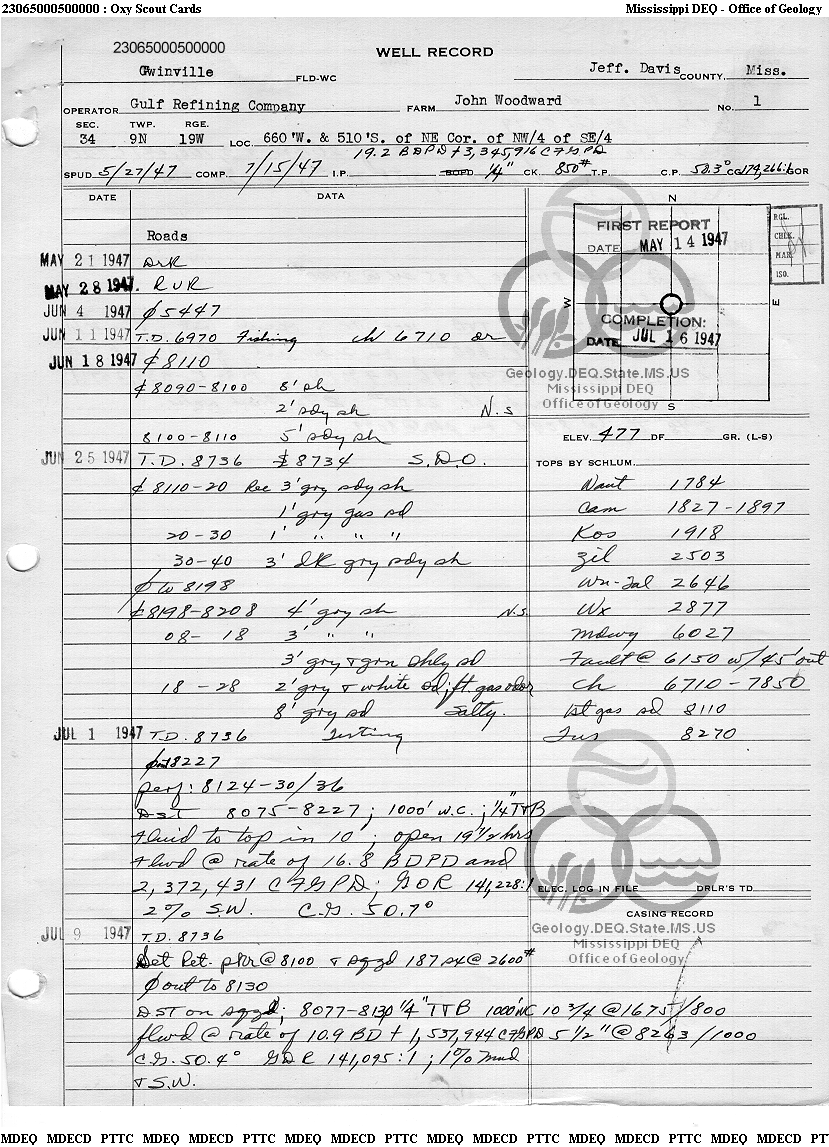 23065000500000 : Oxy Scout Cards Mississippi DEQ - Office of Geology
23065000500000
WELL RECORD
Gwinville FLD-WC Jeff. Davis COUNTY, Miss.
OPERATOR Gulf Refining Company FARM John Woodward No. 1
SEC. TWP. RGE.
34 9N 19W LOC. 660'W. & 510'S. of NE Cor. of NW/4 of SE/4
19.2 BDPD + 3,345,916 CFGPD
SPUD 5/27/47 COMP. 7/15/47 I.P. BOPD 1/4" CK. 850# T.P. C.P. 50.3° CG 174,266:1 GOR
DATE DATA
N
FIRST REPORT
DATE MAY 14 1947
W E
COMPLETION:
DATE JUL 16 1947
S
RGL.
CHLK.
MAR.
ISO.
Geology.DEQ.State.MS.US
Mississippi DEQ
Office of Geology
Roads
MAY 21 1947 DrK
MAY 28 1947. RUR
JUN 4 1947 ⌀5447
JUN 11 1947 T.D. 6970 Fishing Ch 6710 or
JUN 18 1947 ₵8110
₵8090-8100 8' sh
2' sdy sh N.S
8100-8110 5' sdy sh
JUN 25 1947 T.D. 8736 8734 S.D.O.
₵8110-20 Rec 3' gry sdy sh
1' gry gas sd
20-30 1' " " "
30-40 3' dk gry sdy sh
⌀ to 8198
₵8198-8208 4' gry sh N.S.
08- 18 3' " "
3' gry & grn shly sd
18-28 2' gry & white sd; ft. gas odor
8' gry sd Salty.
JUL 1 1947 T.D. 8736 Testing
8227
perf: 8124-30/36
DST 8075-8227; 1000' W.C.; 1/4" T&B
Fluid to top in 10'; open 19 1/2 hrs
Flwd @ rate of 16.8 BDPD and
2,372,431 CFGPD; GOR 141,228:1
2% S.W. C.G. 50.7°
JUL 9 1947 T.D. 8736
Set Ret. pkr @ 8100 & sqzd 187 sx @ 2600#
⌀ out to 8130
DST on sqzd; 8077-8130 1/4" T&B 1000' WC
flwd @ rate of 10.9 BD + 1,537,944 CFGPD
C.G. 50.4° GOR 141,095:1; 1% mud
& S.W.
ELEV. 477 DF GR. (L-S)
TOPS BY SCHLUM.
Waut 1784
Cam 1827-1897
Kos 1918
Zil 2503
Wn-Tal 2646
Wx 2877
Mdwy 6027
Fault @ 6150 w/45' out
Ch 6710-7850
1st gas sd 8110
Tus 8270
ELEC. LOG IN FILE DRLR'S TD
CASING RECORD
Geology.DEQ.State.MS.US
Mississippi DEQ
Office of Geology
10 3/4 @ 1675/800
5 1/2" @ 8263/1000
MDEQ MDECD PTTC MDEQ MDECD PTTC MDEQ MDECD PTTC MDEQ MDECD PTTC MDEQ MDECD PTTC MDEQ MDECD PT